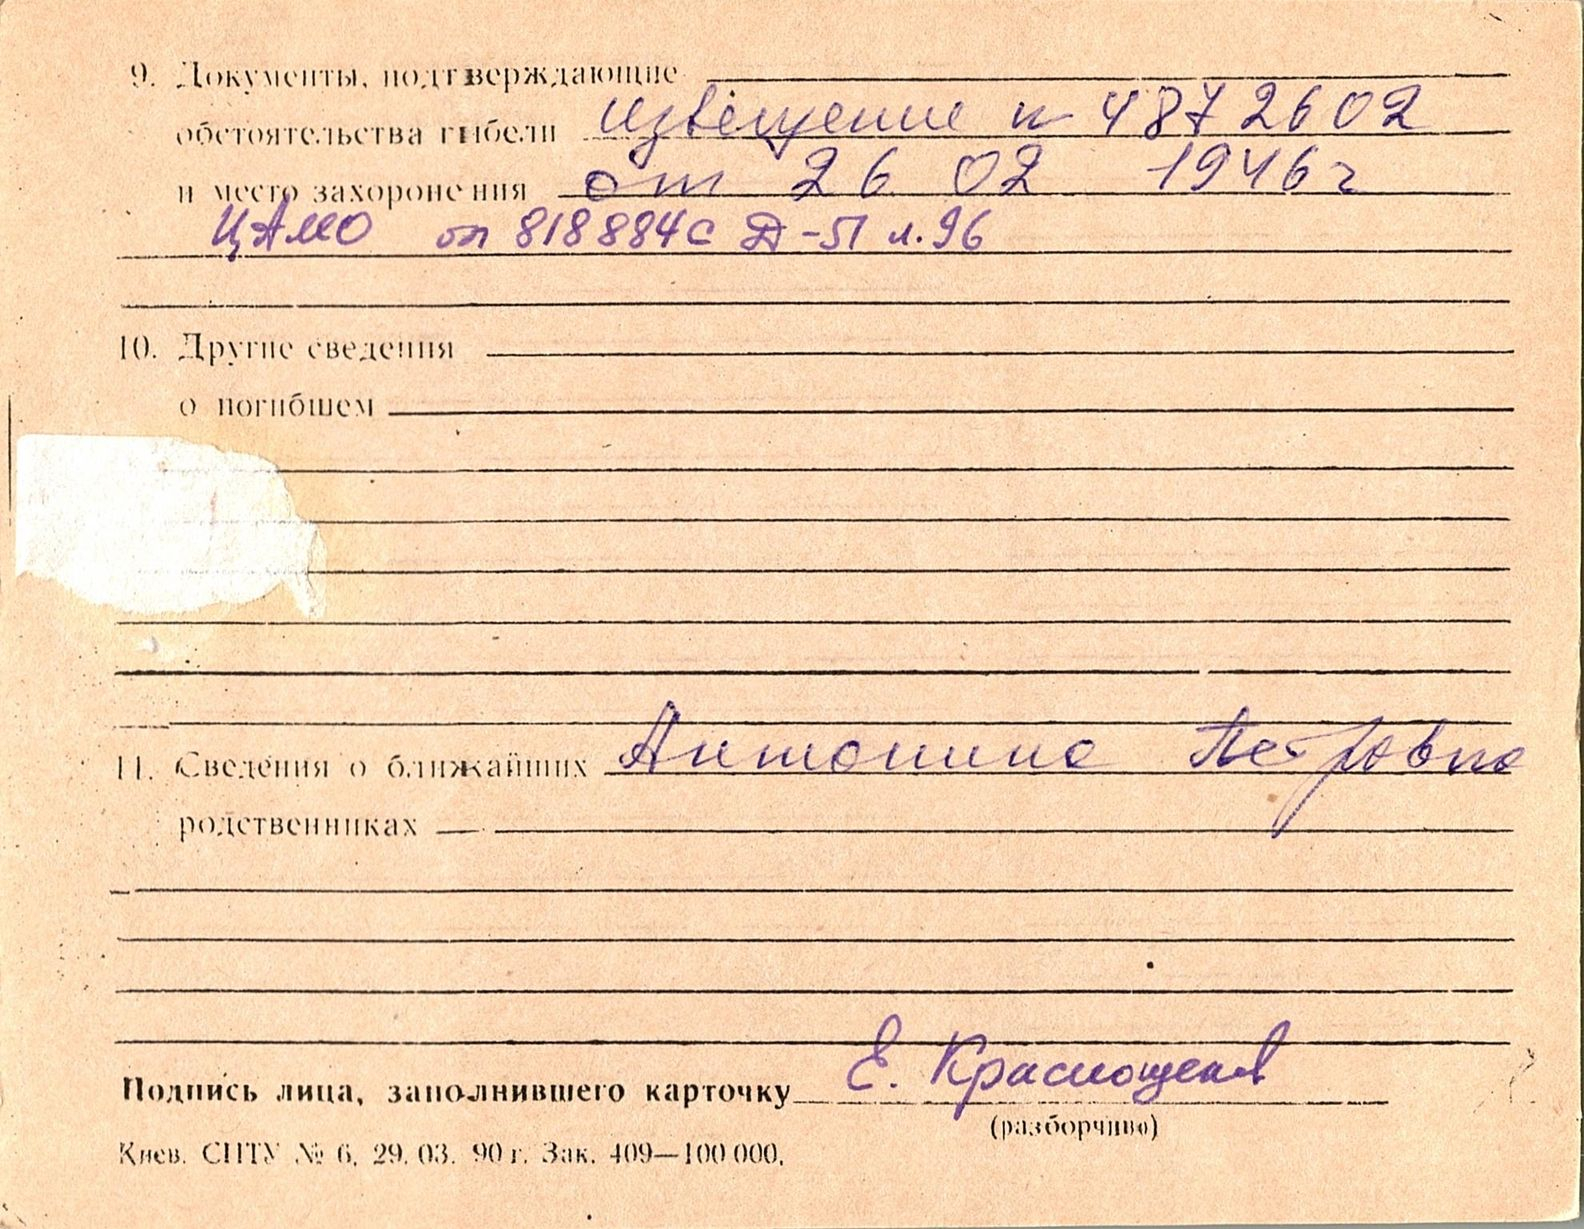 9. Документы, подтверждающие
обстоятельства гибели извещение н 4872602
и место захоронения от 26 02 1946 г
ЦАМО оп 818884с Д-51 л. 96
10. Другие сведения
о погибшем
11. Сведения о ближайших Антонина Петровна
родственниках
Подпись лица, заполнившего карточку Е. Краснощеков
(разборчиво)
Киев. СПТУ № 6. 29. 03. 90 г. Зак. 409—100 000.